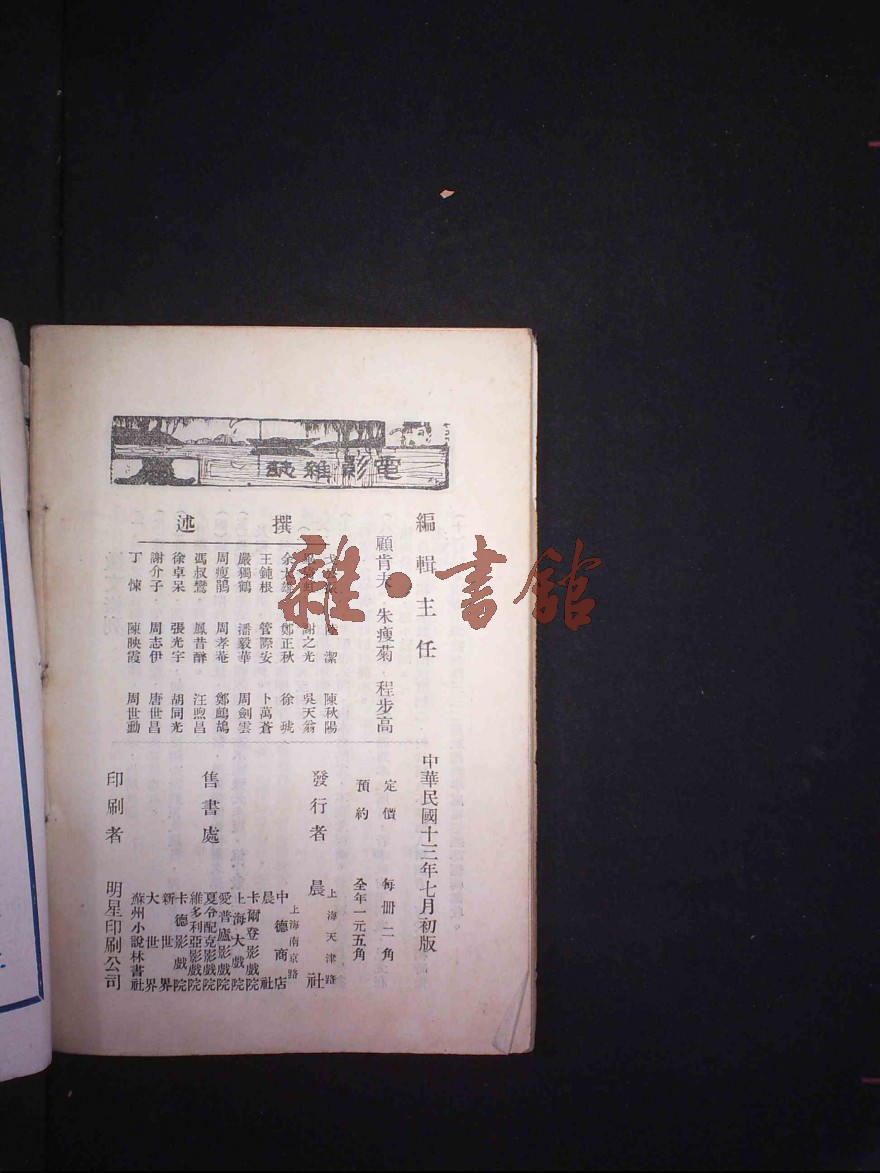 電影雜誌
編輯主任
顧肯夫 朱瘦菊 程步高
撰述
陸潔 陳秋陽
謝之光 吳天翁
鄭正秋 徐琥
王鈍根 管際安 卜萬蒼
嚴獨鶴 潘毅華 周劍雲
周瘦鵑 周孝菴 鄭鷓鴣
馮叔鸞 鳳昔醉 汪煦昌
徐卓呆 張光宇 胡同光
謝介子 周志伊 唐世昌
丁悚 陳映霞 周世勳
中華民國十三年七月初版
定價 每冊二角
預約 全年一元五角
發行者 上海天津路 晨社
售書處
上海南京路
中德商店
晨社
卡爾登影戲院
上海大戲院
愛普廬影戲院
夏令配克影戲院
維多利亞影戲院
卡德影戲院
新世界
大世界
蘇州小說林書社
印刷者 明星印刷公司
雜·書館